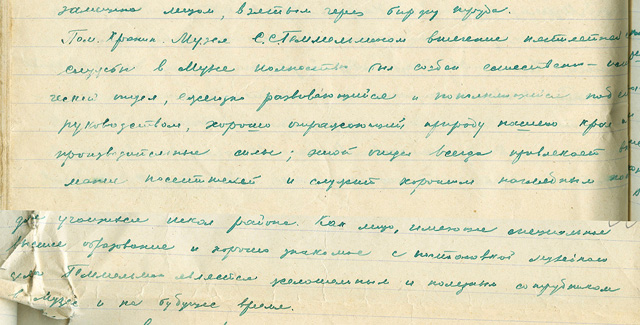 замещена лицом, взятым через биржу труда.
Тов. Хранит. Музея С.С. Геммельманом в течение шестилетней
службы в Музее полностью был создан естественно-
ческий отдел, ежегодно развивающийся и пополняющийся под
руководством, хорошо отражающий природу нашего края и
производительные силы; этот отдел всегда привлекает
мание посетителей и служит хорошим наглядным
для учащихся школ района. Как лицо, имеющее специальное
высшее образование и хорошо знакомое с постановкой музейного
дела Геммельман является желательным и полезным сотрудником
Музея и на будущее время.